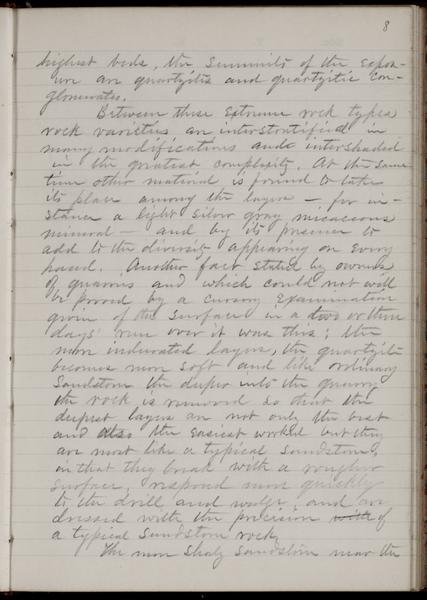 8
highest beds, the summits of the expos-
ure are quartzites and quartzitic con-
glomerates.
Between these extreme rock types
rock varieties are interstratified in
many modifications and intershaded
in the greatest complexity. At the same
time other material is found to take
its place among the layers — for in-
stance a light silver gray micaceous
mineral — and by its presence to
add to the diversity appearing on every
hand. Another fact stated by owners
of quarries and which could not well
be proved by a cursory examination
of the surface in a two or three
days' run over it was this; the
more indurated layers, the quartzite
becomes more soft and like ordinary
Sandstone the deeper into the quarry
the rock is removed so that the
deepest layers are not only the best
and also the easiest worked but they
are most like a typical sandstone,
in that they break with a rougher
surface, respond more quickly
to the drill and wedge, and are
dressed with the precision with of
a typical sandstone rock.
The more shaly sandstone near the